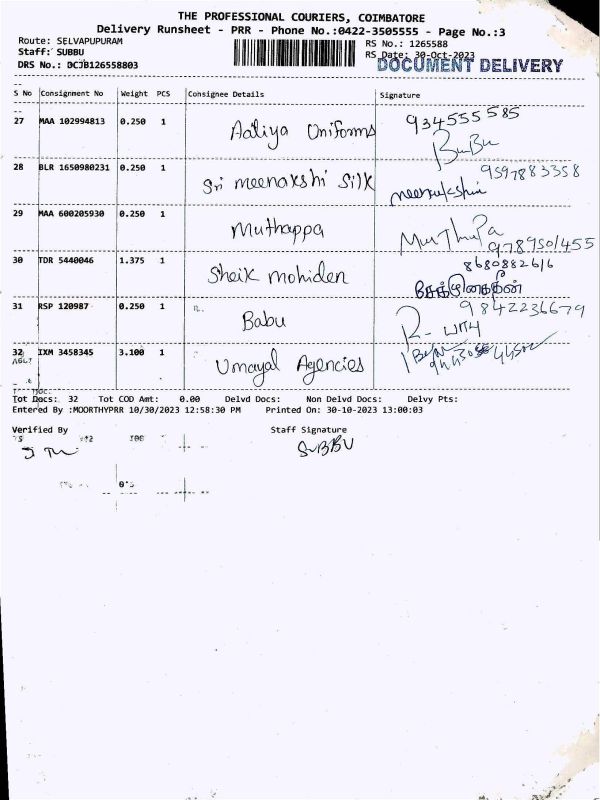 THE PROFESSIONAL COURIERS, COIMBATORE
Delivery Runsheet - PRR - Phone No.:0422-3505555 - Page No.:3
Route: SELVAPUPURAM
RS No.: 1265588
Staff: SUBBU
RS Date: 30-Oct-2023
DRS No.: DCJB126558803
DOCUMENT DELIVERY
S No Consignment No Weight PCS Consignee Details Signature
27 MAA 102994813 0.250 1 Aaliya Uniforms 934555585
BuBu
28 BLR 1650980231 0.250 1 Sri meenakshi Silk 9597883358
meenakshi
29 MAA 600205930 0.250 1 Muthappa MuThuPa
9789501455
30 TDR 5440046 1.375 1 Sheik mohiden 8680882616
31 RSP 120987 0.250 1 Babu 9842236679
R- பாபு
32 IXM 3458345 3.100 1 Umayal Agencies
Tot Docs: 32 Tot COD Amt: 0.00 Delvd Docs: Non Delvd Docs: Delvy Pts:
Entered By :MOORTHYPRR 10/30/2023 12:58:30 PM Printed On: 30-10-2023 13:00:03
Verified By Staff Signature
SUBBU